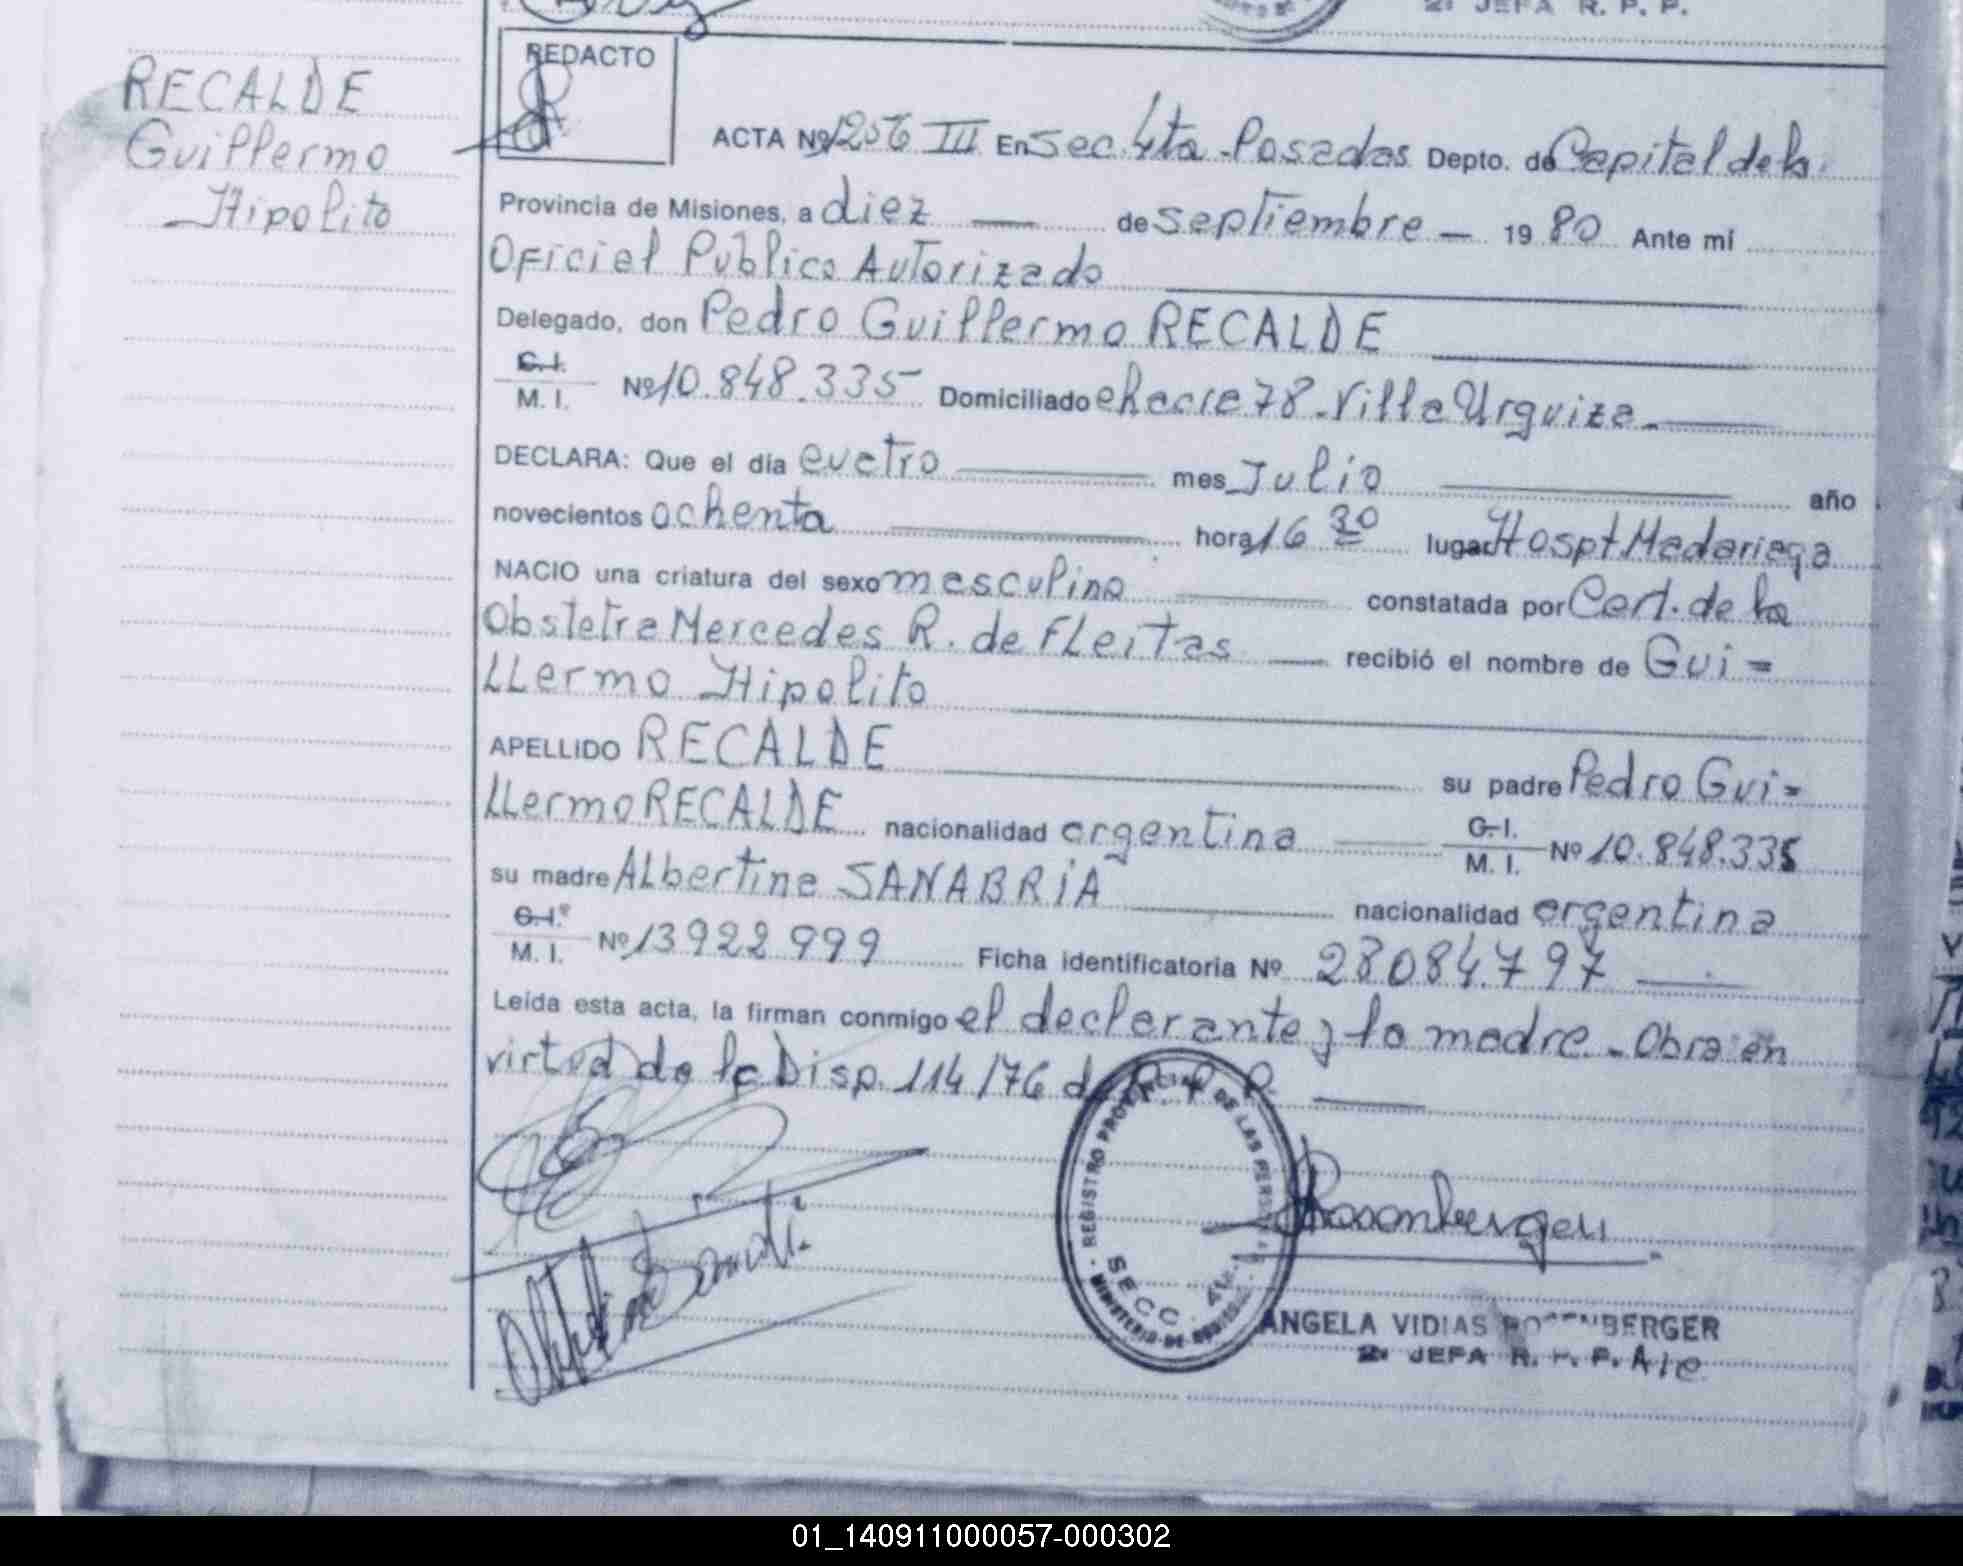 2: JEFA R. P. P.
RECALDE
Guillermo
Hipolito
REDACTO
ACTA Nº 1256 III En Sec. 4ta. Posadas Depto. de Capital de la
Provincia de Misiones, a diez de septiembre 19 80 Ante mi
Oficial Público Autorizado
Delegado, don Pedro Guillermo RECALDE
C.I. M. I. Nº 10.848.335 Domiciliado chacra 78 - Villa Urquiza.
DECLARA: Que el día cuatro mes Julio año
novecientos ochenta hora 16 30 lugar Hospt. Madariaga
NACIO una criatura del sexo masculino constatada por Cert. de la
Obstetra Mercedes R. de FLeitas recibió el nombre de Gui=
LLermo Hipolito
APELLIDO RECALDE su padre Pedro Gui=
LLermo RECALDE nacionalidad argentina C.I. M. I. Nº 10.848.335
su madre ALbertina SANABRIA nacionalidad argentina
C.I. M. I. Nº 13922999 Ficha identificatoria Nº 28084.797
Leída esta acta, la firman conmigo el declarante y la madre. Obra en
virtud de la Disp. 114/76 de R. P. P.
REGISTRO PROVINCIAL DE LAS PERSONAS
SECC. 4ta.
MINISTERIO DE GOBIERNO
Rosenberger
ANGELA VIDIAS ROSENBERGER
2: JEFA R. P. P. A/C
01_140911000057-000302